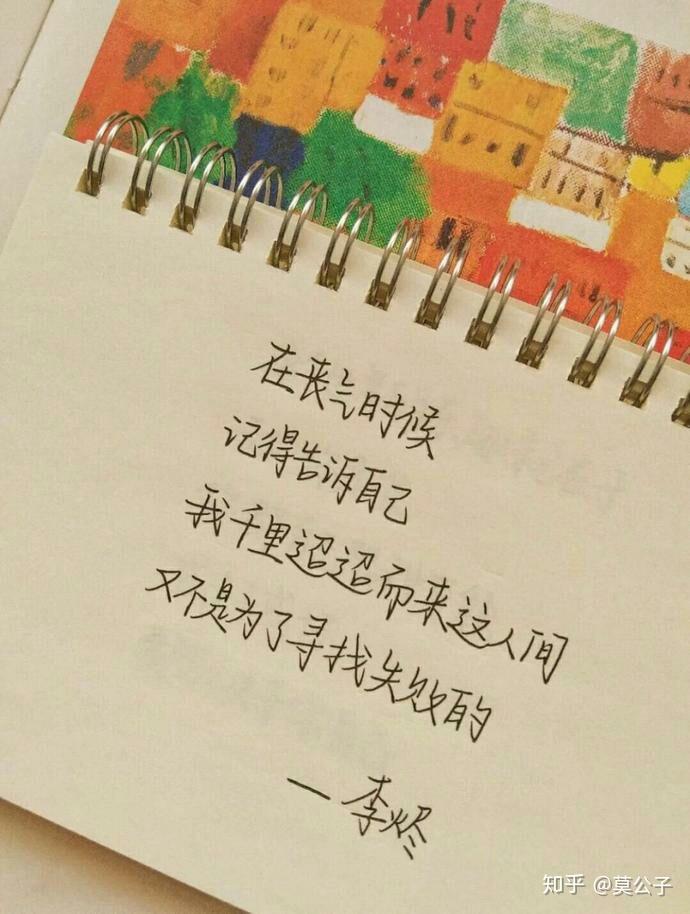 在丧气时候
记得告诉自己
我千里迢迢而来这人间
又不是为了寻找失败的
—李烬
知乎 @莫公子